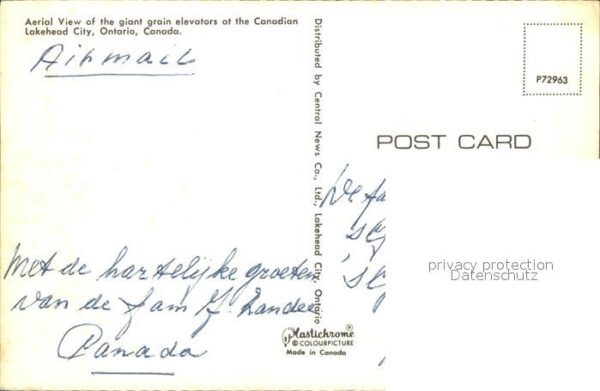 Aerial View of the giant grain elevators at the Canadian
Lakehead City, Ontario, Canada.
Airmail
Met de hartelijke groeten
van de fam
Canada
Distributed by Central News Co., Ltd., Lakehead City, Ontario
Plastichrome®
© COLOURPICTURE
Made in Canada
P72963
POST CARD
De fa
privacy protection
Datenschutz